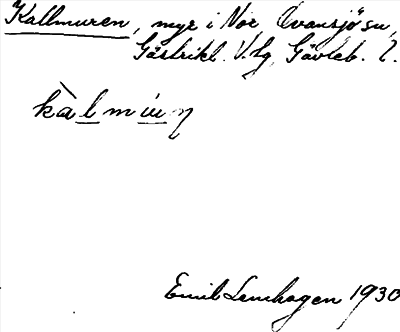 Kallmuren, myr i Nor Ovansjö sn,
Gästrikl. V. lg, Gävleb. l.
kàlmuɳ
Emil Lenhagen 1930